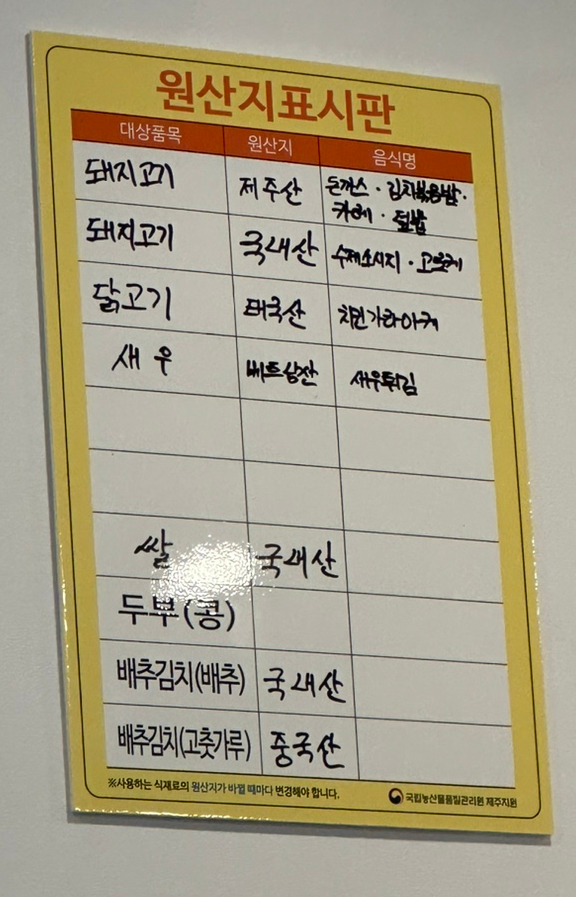 원산지표시판
대상품목 원산지 음식명
돼지고기 제주산 돈까스 · 김치볶음밥 ·
카레 · 덮밥
돼지고기 국내산 수제소시지 · 고로케
닭고기 태국산 치킨가라아케
새우 베트남산 새우튀김
쌀 국내산
두부(콩)
배추김치(배추) 국내산
배추김치(고춧가루) 중국산
※사용하는 식재료의 원산지가 바뀔 때마다 변경해야 합니다.
국립농산물품질관리원 제주지원